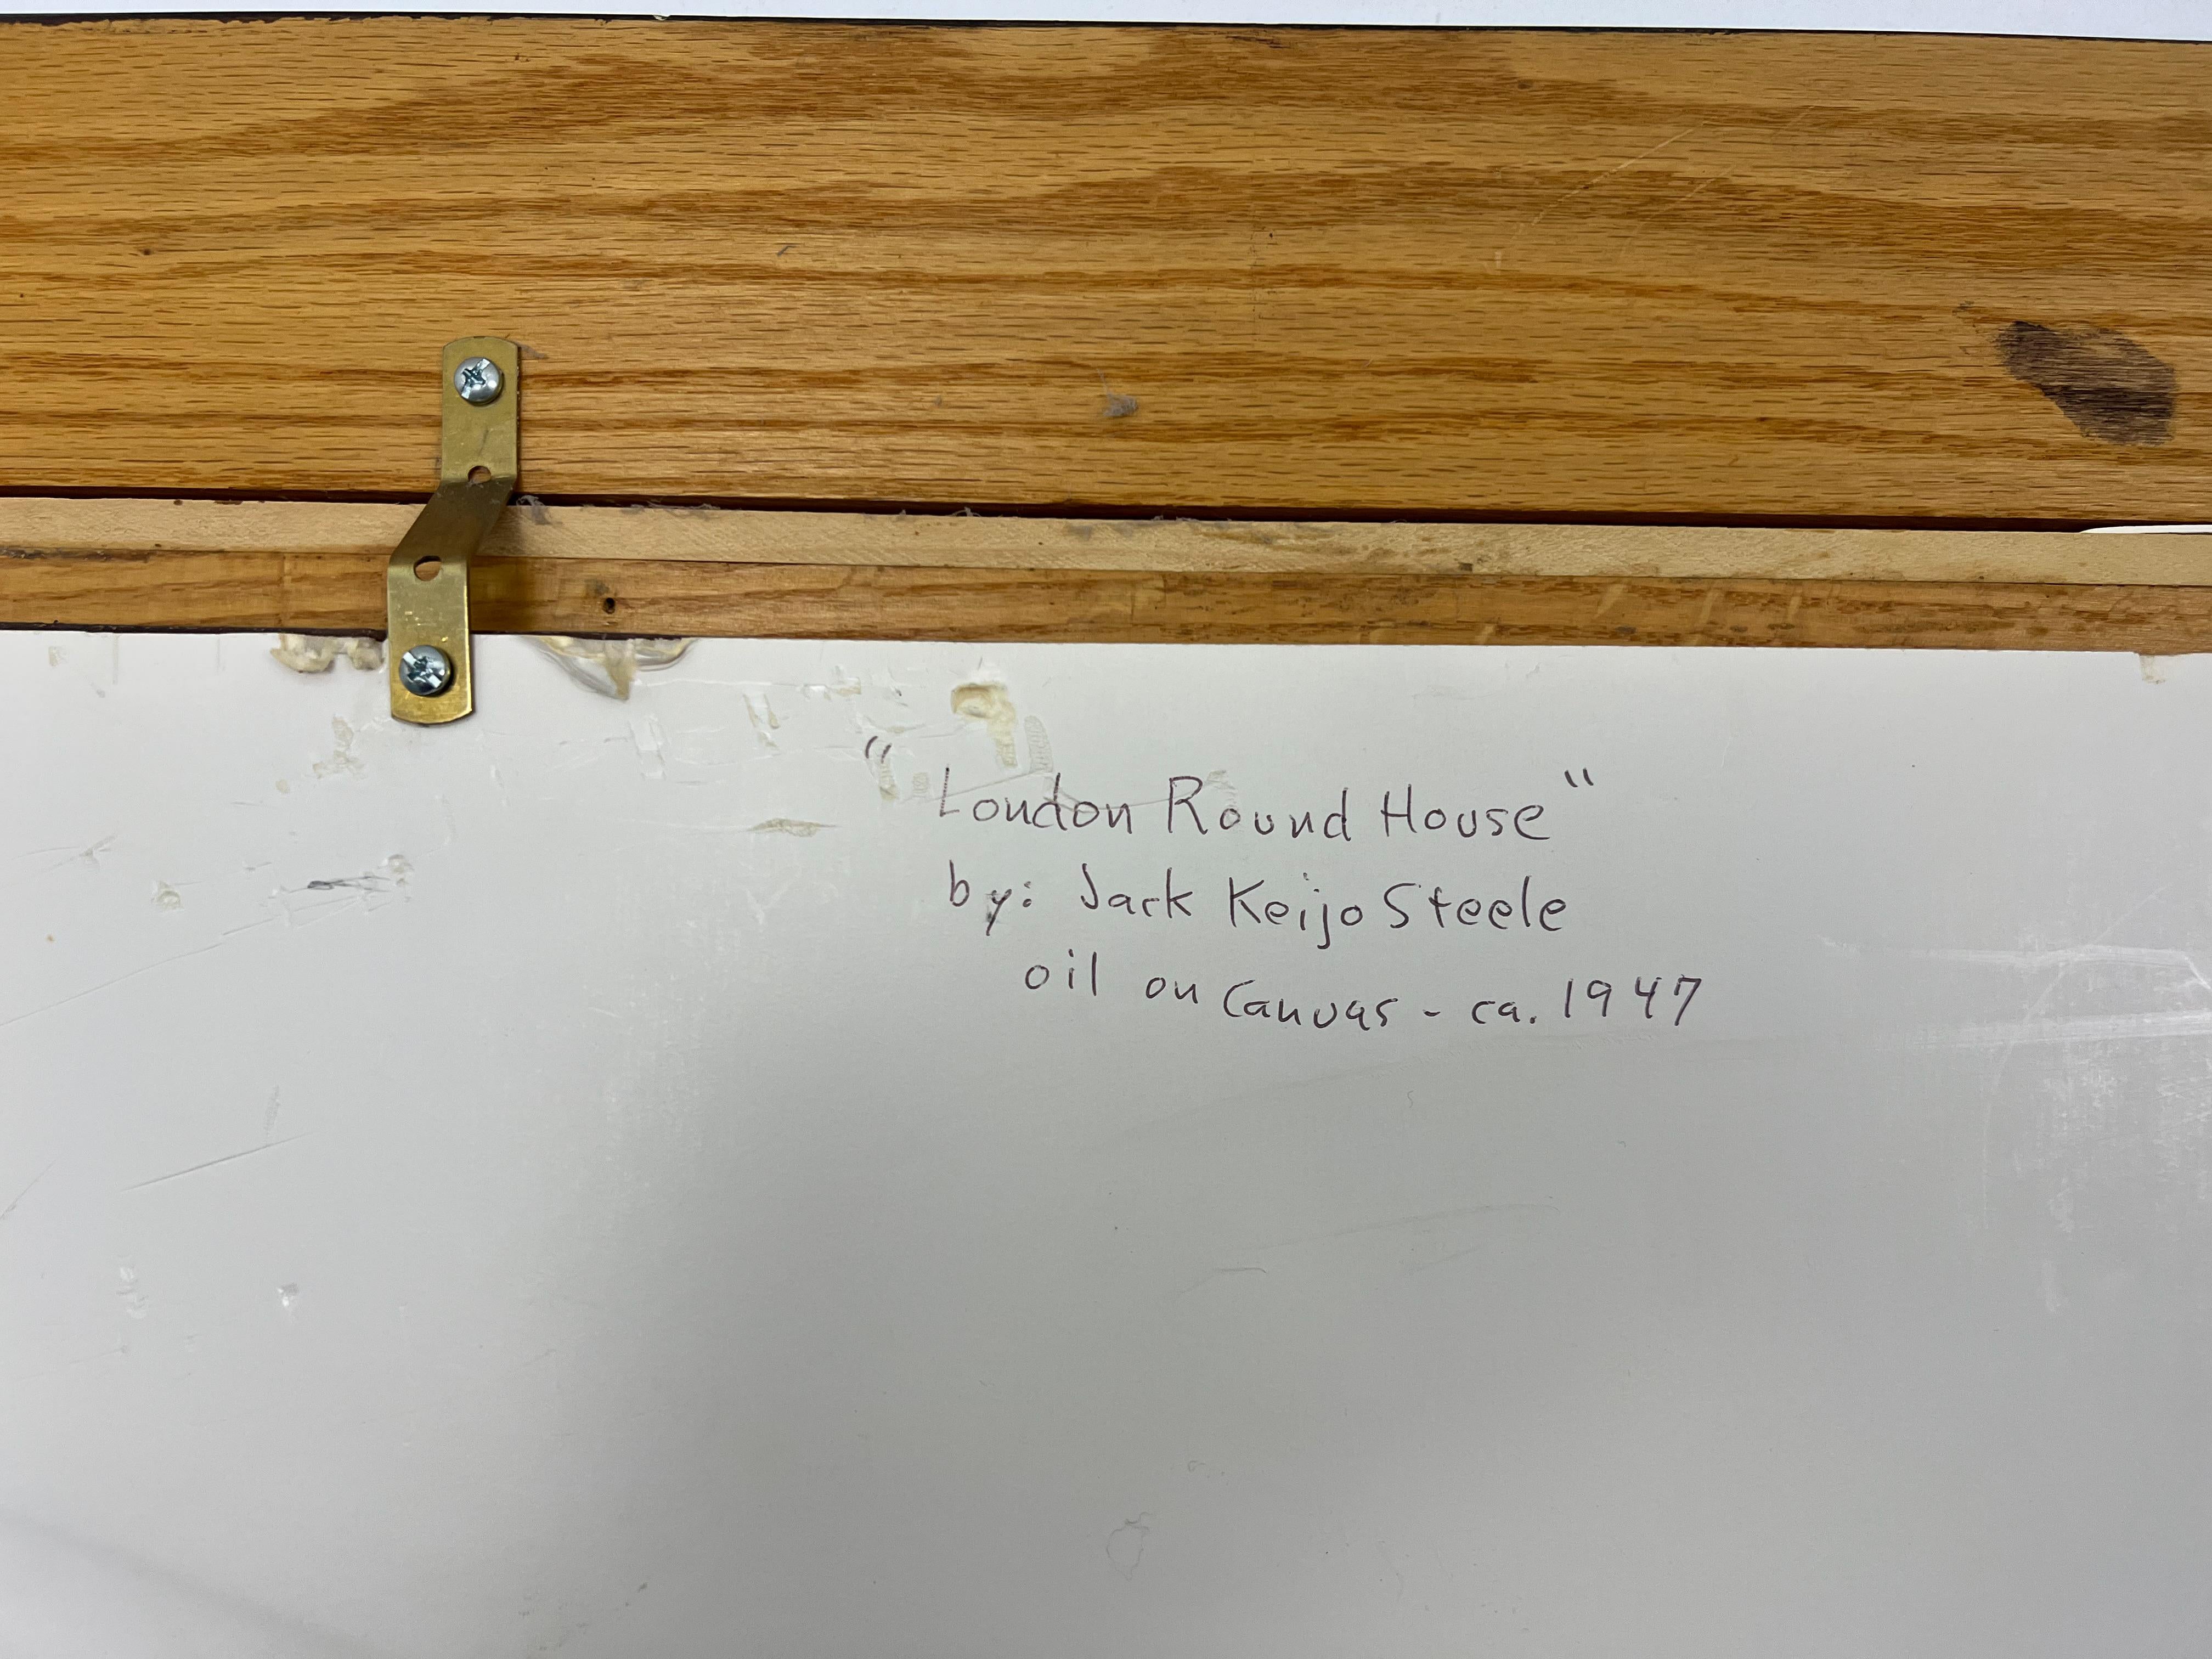 "London Round House"
by: Jack Keijo Steele
oil on Canvas - ca. 1947